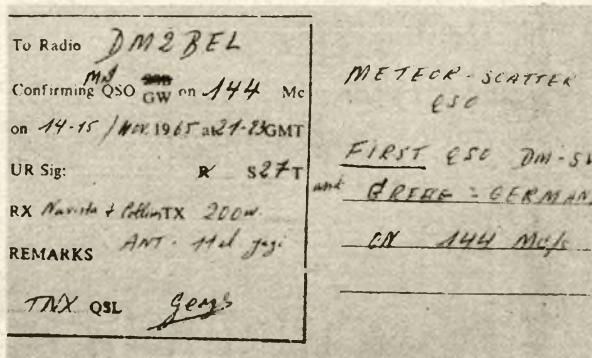 To Radio DM2BEL
Confirming MS QSO GW on 144 Mc
on 14-15 / NOV. 1965 at 21-23 GMT
UR Sig: R S27T
RX & TX 200w.
REMARKS ANT - 11 el yagi
TNX QSL
METEOR-SCATTER
QSO
FIRST QSO DM-SV
and GREECE - GERMAN
ON 144 Mc/s